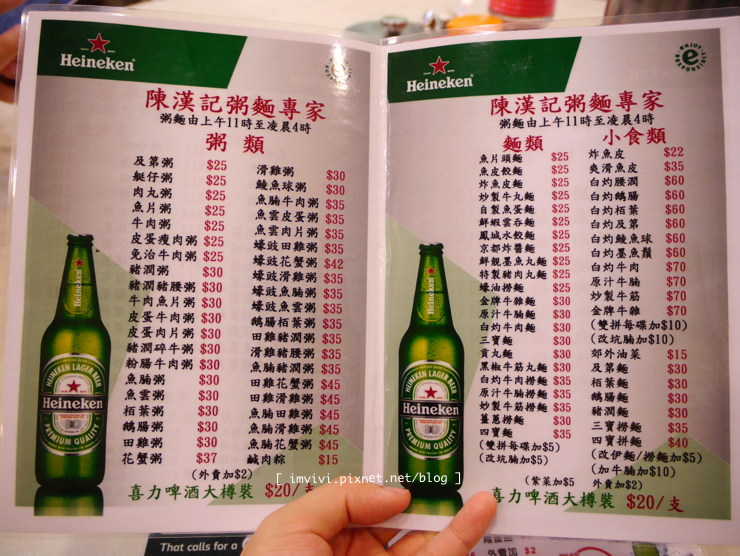 Heineken
陳漢記粥麵專家
粥麵由上午11時至凌晨4時
粥類
及第粥 $25
艇仔粥 $25
肉丸粥 $25
魚片粥 $25
牛肉粥 $25
皮蛋瘦肉粥 $25
免治牛肉粥 $25
豬潤粥 $30
豬潤豬腰粥 $30
牛肉魚片粥 $30
皮蛋牛肉粥 $30
皮蛋肉片粥 $30
豬潤碎牛粥 $30
粉腸牛肉粥 $30
魚腩粥 $30
魚雲粥 $30
栢葉粥 $30
鵝腸粥 $30
田雞粥 $30
花蟹粥 $37
滑雞粥 $30
鯪魚球粥 $30
魚腩牛肉粥 $35
魚雲皮蛋粥 $35
魚雲肉片粥 $35
蠔豉田雞粥 $35
蠔豉花蟹粥 $42
蠔豉滑雞粥 $35
蠔豉魚腩粥 $35
蠔豉魚雲粥 $35
鵝腸栢葉粥 $35
田雞豬潤粥 $35
滑雞豬腰粥 $35
魚腩豬潤粥 $35
田雞花蟹粥 $45
田雞滑雞粥 $45
魚腩田雞粥 $45
魚腩滑雞粥 $45
魚腩花蟹粥 $45
鹹肉粽 $15
(外賣加$2)
喜力啤酒大樽裝 $20/支
HEINEKEN LAGER BEER
Heineken
PREMIUM QUALITY
Heineken
陳漢記粥麵專家
粥麵由上午11時至凌晨4時
麵類
魚片頭麵 $25
魚皮餃麵 $25
炸魚皮麵 $25
炒製牛丸麵 $25
自製魚蛋麵 $25
鮮蝦雲吞麵 $25
鳳城水餃麵 $25
京都炸醬麵 $25
鮮靚墨魚丸麵 $25
特製豬肉丸麵 $25
蠔油撈麵 $25
金牌牛雜麵 $30
原汁牛腩麵 $30
白灼牛肉麵 $30
三寶麵 $30
貢丸麵 $30
黑椒牛筋丸麵 $30
白灼牛肉撈麵 $35
原汁牛腩撈麵 $35
炒製牛筋撈麵 $35
薑蔥撈麵 $30
四寶麵 $35
(雙拼每碟加$5)
(改坑腩加$5)
小食類
炸魚皮 $22
爽滑魚皮 $35
白灼腰潤 $60
白灼鵝腸 $60
白灼栢葉 $60
白灼及第 $60
白灼鯪魚球 $60
白灼墨魚鬚 $60
白灼牛肉 $70
原汁牛腩 $70
炒製牛筋 $70
金牌牛雜 $70
(雙拼每碟加$10)
(改坑腩加$10)
郊外油菜 $15
及第麵 $30
栢葉麵 $30
鵝腸麵 $30
豬潤麵 $30
三寶撈麵 $35
四寶拼麵 $40
(改伊麵/撈麵加$5)
(加牛腩加$10)
(紫菜加$5 外賣加$2)
喜力啤酒大樽裝 $20/支
Heineken
HEINEKEN LAGER BEER
Heineken
PREMIUM QUALITY
[ imvivi.pixnet.net/blog ]
That calls for a